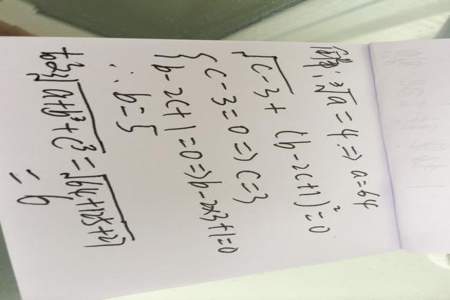 解：∛a = 4 ⇒ a = 64
√(c-3) + (b-2c+1)² = 0
{ c-3=0 ⇒ c=3
b-2c+1=0 ⇒ b-2×3+1=0
∴ b=5
∛(a+b³+c³) = √(64+125+27)
= 6